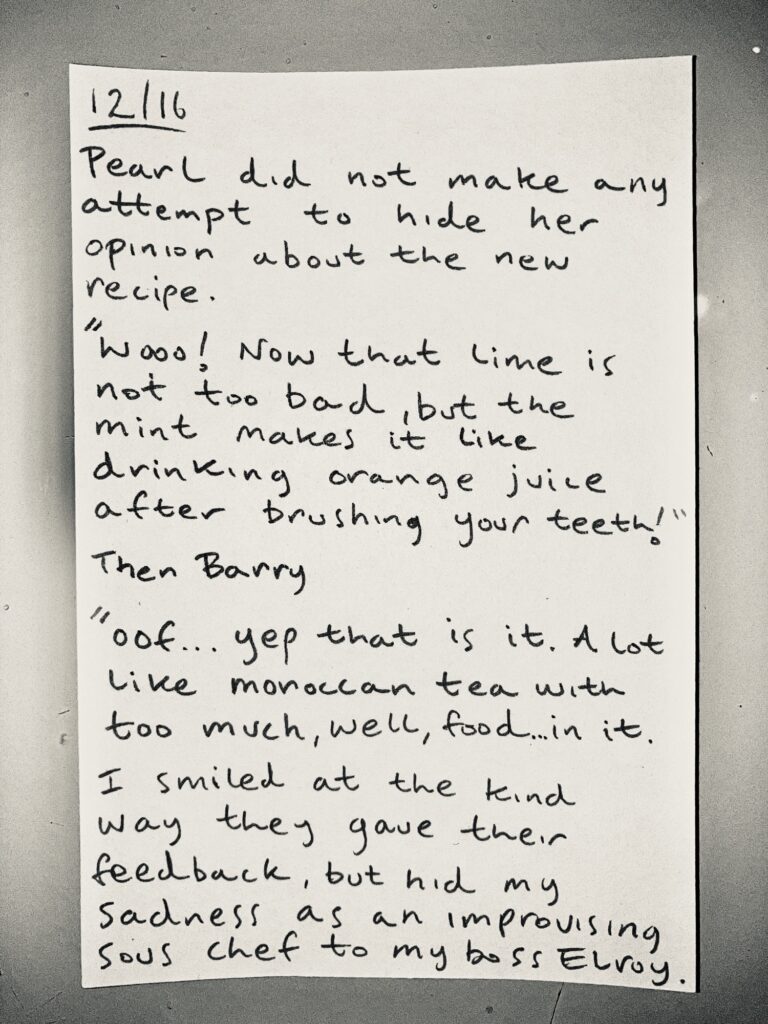 12/16
Pearl did not make any
attempt to hide her
opinion about the new
recipe.
"Wooo! Now that lime is
not too bad, but the
mint makes it like
drinking orange juice
after brushing your teeth!"
Then Barry
"oof... yep that is it. A lot
like moroccan tea with
too much, well, food...in it.
I smiled at the kind
way they gave their
feedback, but hid my
sadness as an improvising
sous chef to my boss Elroy.